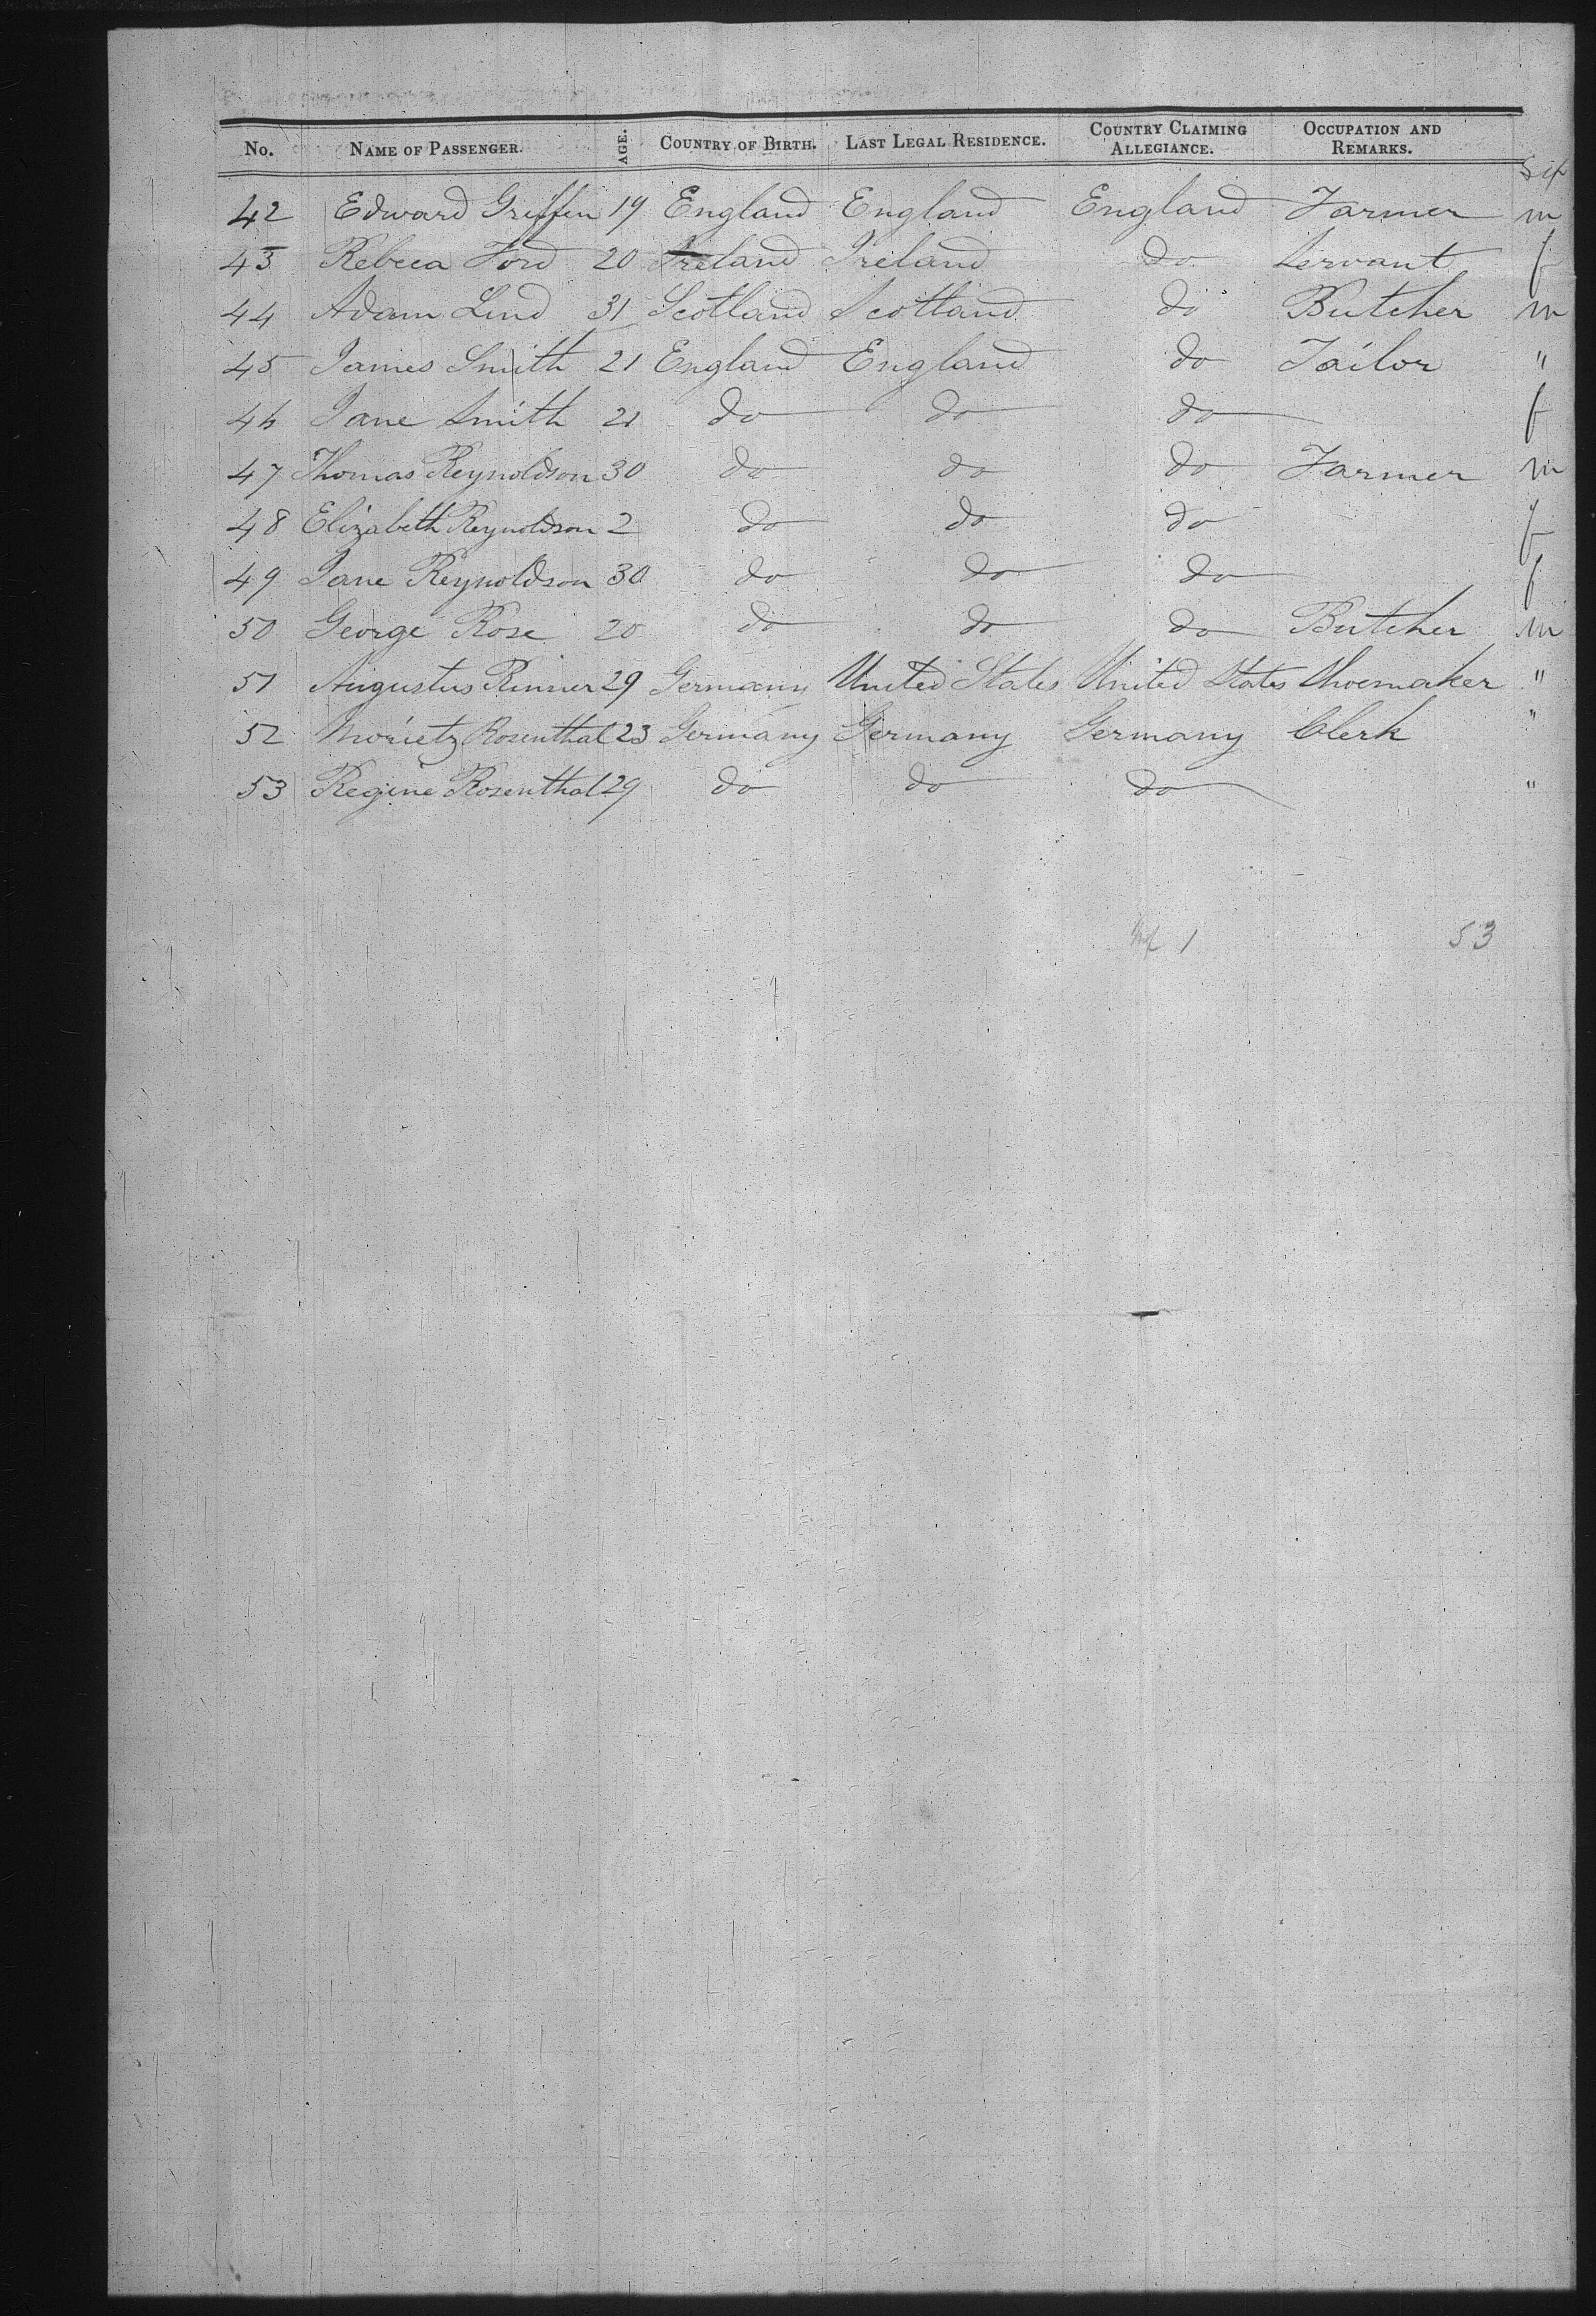 No. NAME OF PASSENGER. AGE. COUNTRY OF BIRTH. LAST LEGAL RESIDENCE. COUNTRY CLAIMING ALLEGIANCE. OCCUPATION AND REMARKS.
42 Edward Griffen 19 England England England Farmer m
43 Rebeca Ford 20 Ireland Ireland do Servant f
44 Adam Lind 31 Scotland Scotland do Butcher m
45 James Smith 21 England England do Tailor "
46 Jane Smith 21 do do do f
47 Thomas Reynoldson 30 do do do Farmer m
48 Elizabeth Reynoldson 2 do do do f
49 Jane Reynoldson 30 do do do f
50 George Rose 20 do do do Butcher m
51 Augustus Rinner 29 Germany United States United States Shoemaker "
52 Morietz Rosenthal 23 Germany Germany Germany Clerk "
53 Regine Rosenthal 29 do do do "
1 53